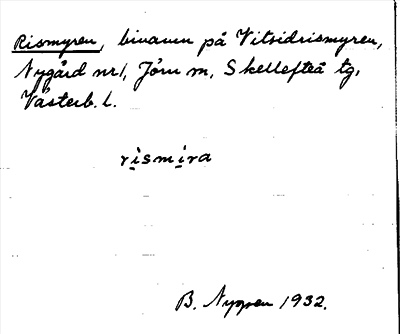 Rismyren, binamn på Vitsidrismyren,
Nygård nr 1, Jörn sn, Skellefteå tg,
Västerb. l.
rismira
B. Nygren 1932.